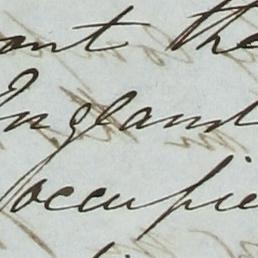 ant the
England
occupie